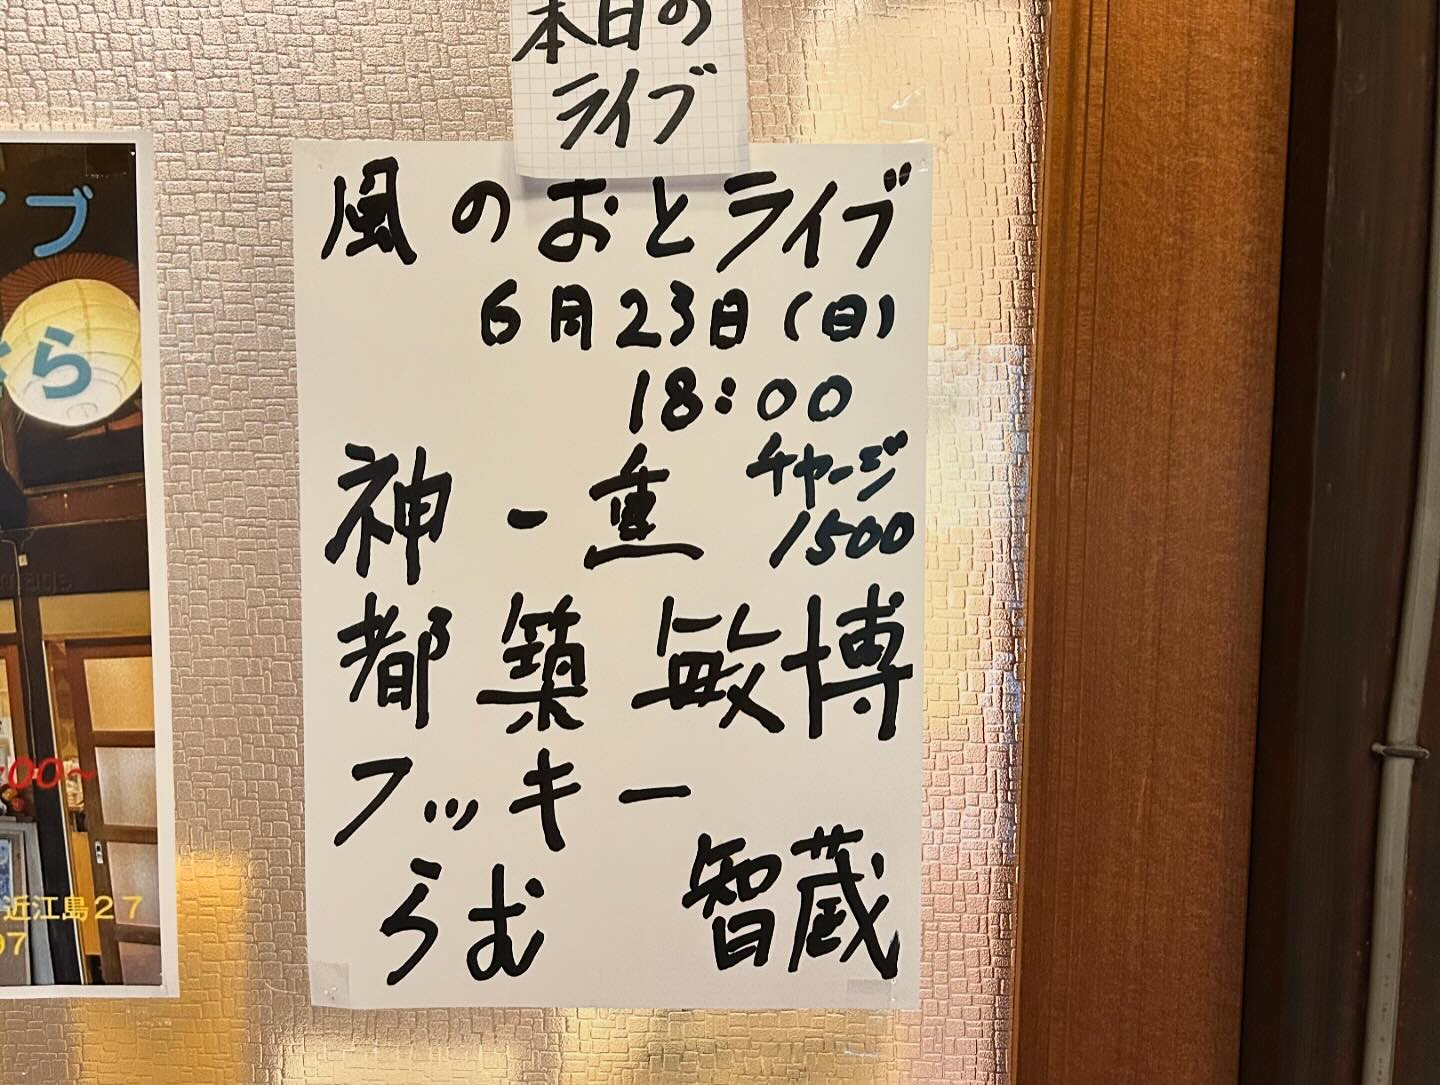 本日の
ライブ
風のおとライブ
6月23日(日)
18:00
神一薫
チャージ
1500
都築敏博
フッキー
らむ 智蔵
イブ
ら
:00~
近江島27
97